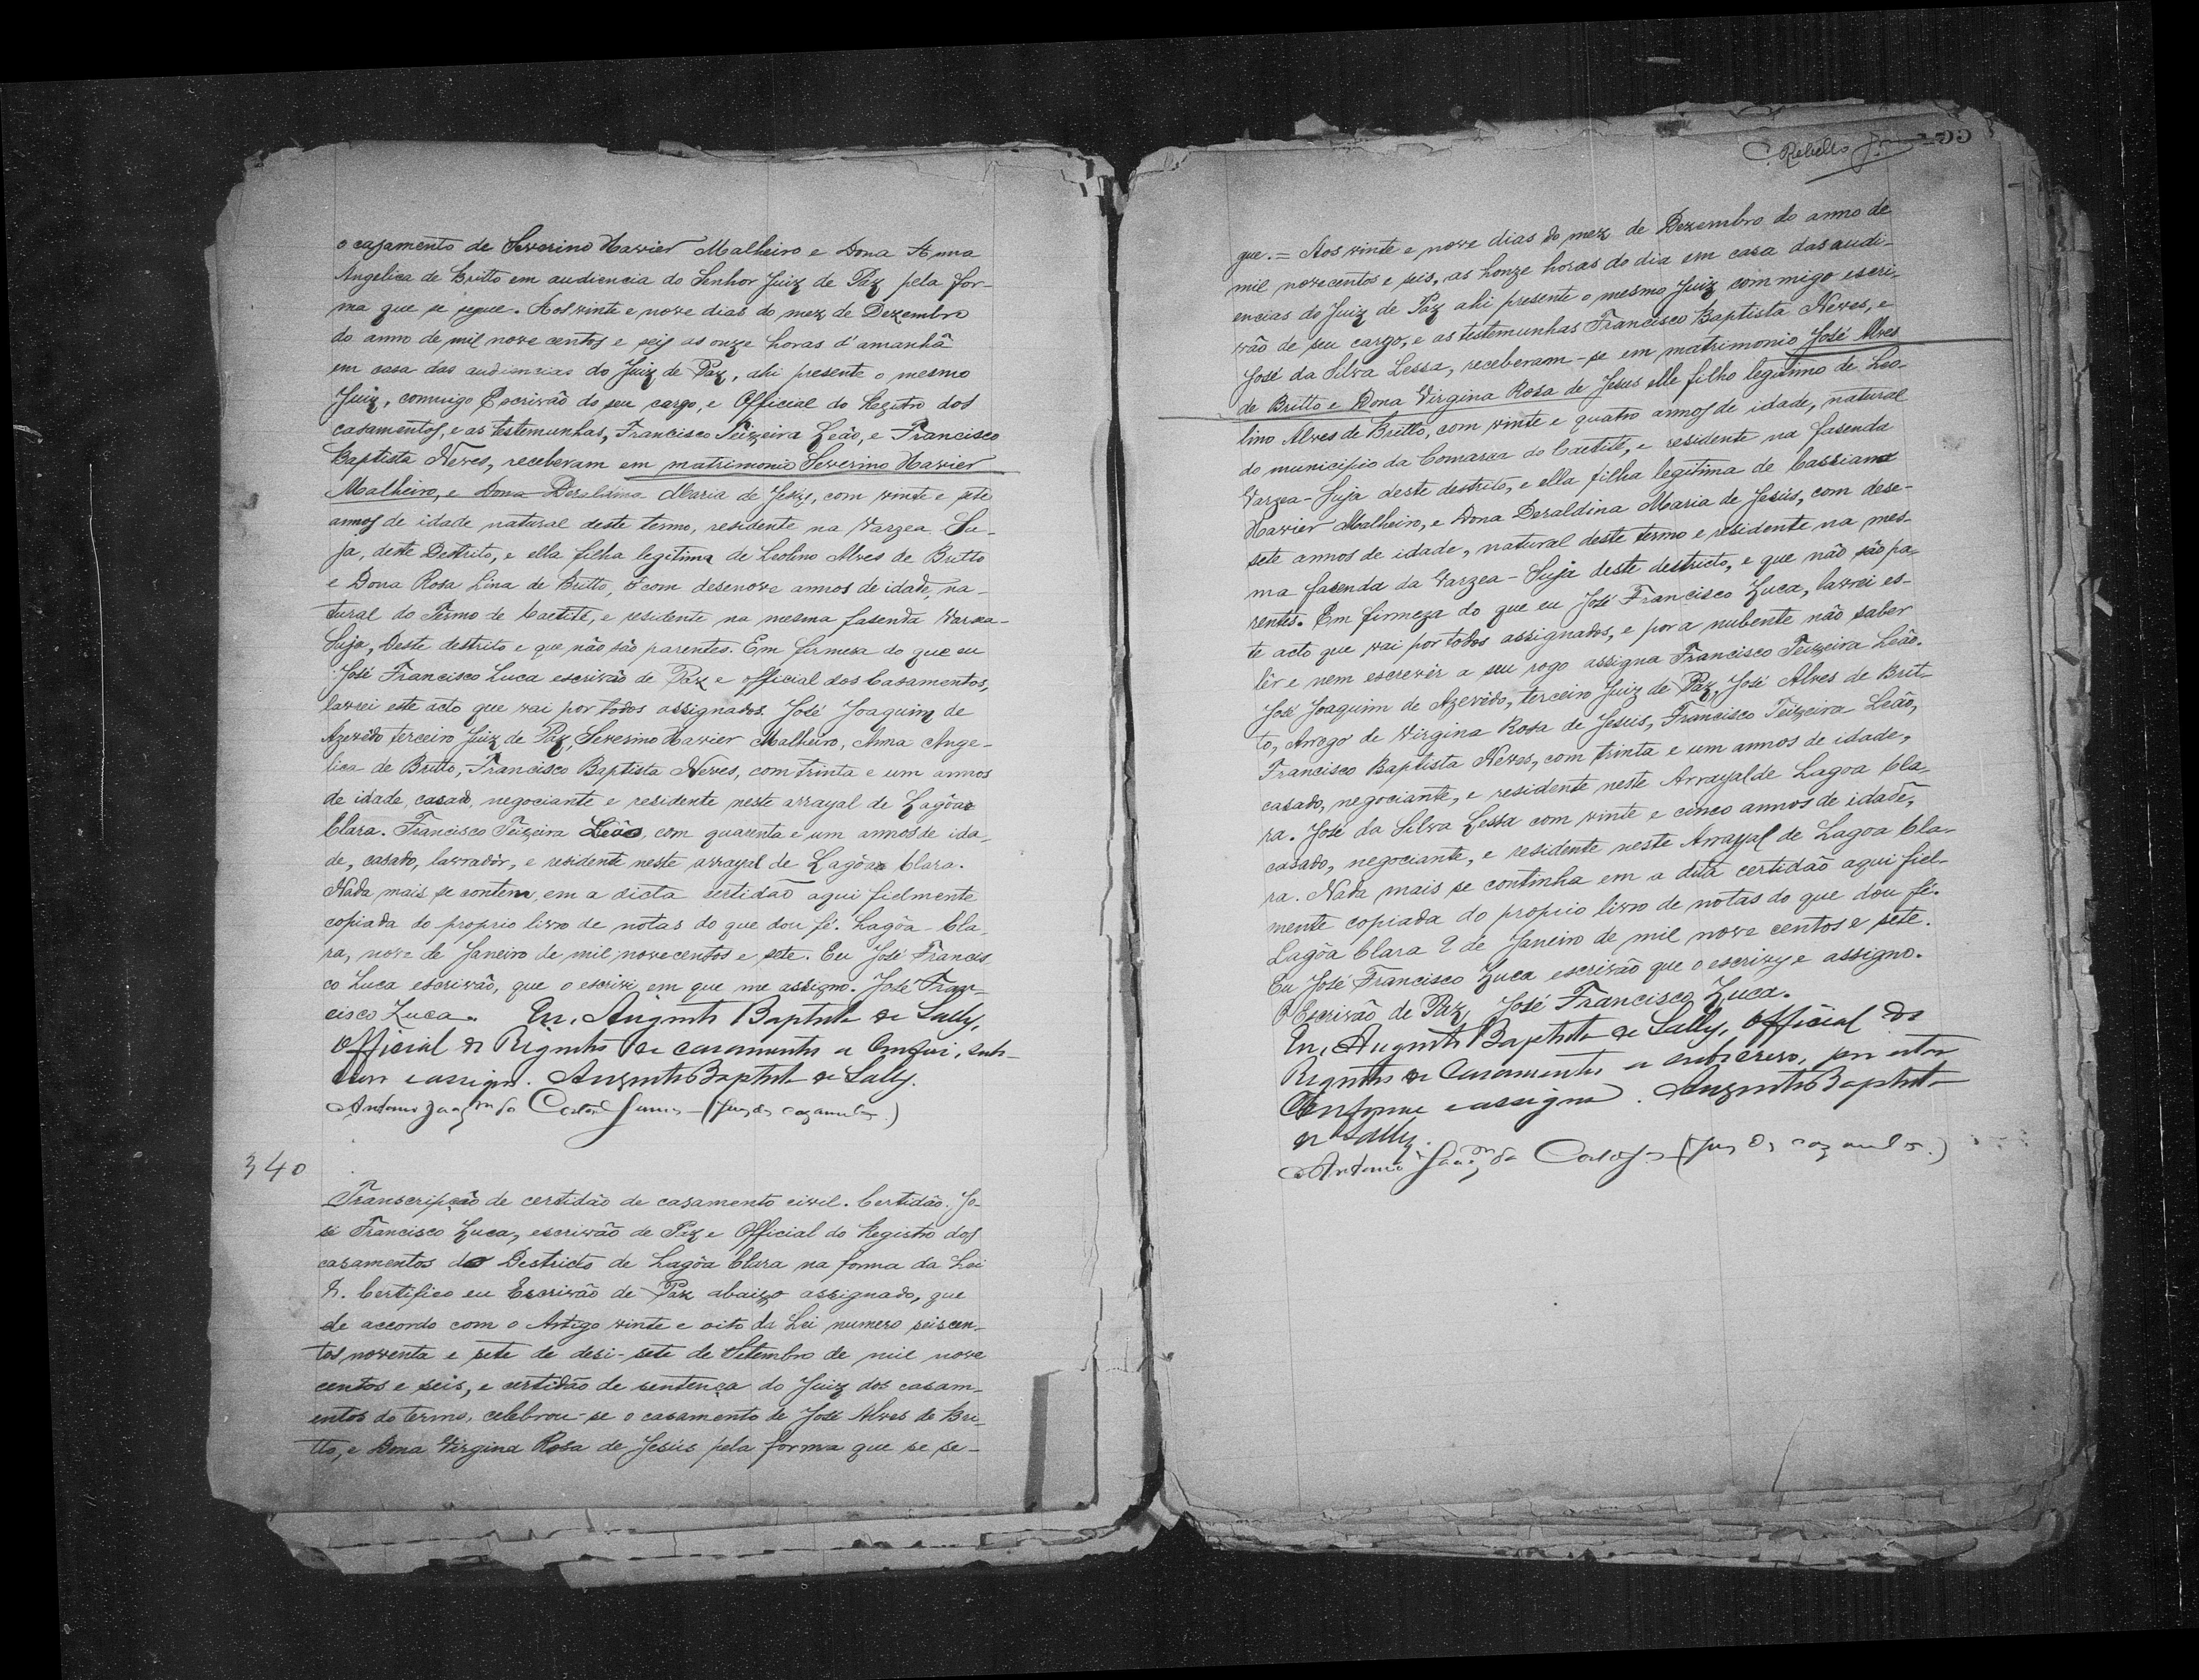 o casamento de Severino Xavier Malheiro e Dona Anna
Angelica de Britto em audiencia do Senhor Juiz de Paz pela for-
ma que se segue. Aos vinte e nove dias do mez de Dezembro
do anno de mil nove centos e seis as onze horas d'amanhã
em casa das audiencias do Juiz de Paz, ahi presente o mesmo
Juiz, commigo Escrivão do seu cargo, e Official do Registro dos
casamentos, e as testemunhas, Francisco Teixeira Leão, e Francisco
Baptista Neves, receberam em matrimonio Severino Xavier
Malheiro, e Dona Deraldina Maria de Jesus, com vinte e sete
annos de idade natural deste termo, residente na Varzea Su-
ja, deste Destrito, e ella filha legitima de Leolino Alves de Britto
e Dona Rosa Lina de Britto, com desenove annos de idade, na-
tural do Termo de Caetité, e residente na mesma fasenda Varzea-
Suja, deste destrito e que não são parentes. Em firmesa do que eu
José Francisco Zuca escrivão de Paz e official dos Casamentos,
lavrei este acto que vai por todos assignados. José Joaquim de
Azevêdo terceiro Juiz de Paz, Severino Xavier Malheiro, Anna Ange-
lica de Britto, Francisco Baptista Neves, com trinta e um annos
de idade, casado, negociante e residente neste arrayal de Lagôa
Clara. Francisco Teixeira Leão, com quarenta e um annos de ida-
de, casado, lavradôr, e residente neste arrayal de Lagôa Clara.
Nada mais se contem, em a dicta certidão aqui fielmente
copiada do proprio livro de notas do que dou fé. Lagôa-Cla-
ra, nove de Janeiro de mil novecentos e sete. Eu José Francis
co Zuca escrivão, que o escrivi em que me assigno. José Fran-
cisco Zuca. Eu, Augusto Baptista de Lally,
Official do Registro de casamentos a conferi, subs-
crevo e assigno. Augusto Baptista de Lally.
Antonio
340
Transcripção de certidão de casamento civil. Certidão. Jo-
sé Francisco Zuca, escrivão de Paz e Official do Registro dos
casamentos do Destricto de Lagôa Clara na forma da Lei
&. Certifico eu Escrivão de Paz abaixo assignado, que
de accordo com o Artigo vinte e oito da Lei numero seiscen-
tos noventa e sete de desi-sete de Setembro de mil nove
centos e seis, e certidão de sentença do Juiz dos casam-
entos do termo, celebrou-se o casamento de José Alves de Bri-
tto, e Dona Virgina Rosa de Jesús pela forma que se se-
Rebello
gue. = Aos vinte e nove dias do mez de Dezembro do anno de
mil novecentos e seis, as honze horas do dia em casa das audi-
encias do Juiz de Paz ahi presente o mesmo Juiz commigo escri-
vão de seu cargo, e as testemunhas Francisco Baptista Neves, e
José da Silva Lessa, receberam-se em matrimonio José Alves
de Britto e Dona Virgina Rosa de Jesus elle filho legitimo de Leo-
lino Alves de Britto, com vinte e quatro annos de idade, natural
do municipio da Comarca do Caetité, e residente na fasenda
Varzea-Suja deste destrito, e ella filha legitima de Cassiano
Xavier Malheiro, e Dona Deraldina Maria de Jesús, com dese-
sete annos de idade, natural deste termo e residente na mes-
ma fasenda da Varzea-Suja deste destricto, e que não são pa-
rentes. Em firmeza do que eu José Francisco Zuca, lavrei es-
te acto que vai por todos assignados, e por a nubente não saber
lêr e nem escrevêr a seu rogo assigna Francisco Teixeira Leão.
José Joaquim de Azevêdo, terceiro Juiz de Paz, José Alves de Brit-
to, Arrogo de Virgina Rosa de Jesus, Francisco Teixeira Leão,
Francisco Baptista Neves, com trinta e um annos de idade,
casado, negociante, e residente neste Arrayal de Lagoa Cla-
ra. José da Silva Lessa com vinte e cinco annos de idade,
casado, negociante, e residente neste Arrayal de Lagoa Cla-
ra. Nada mais se continha em a dita certidão aqui fiel-
mente copiada do proprio livro de notas do que dou fé.
Lagôa Clara 9 de Janeiro de mil nove centos e sete.
Eu José Francisco Zuca escrivão que o escrivy e assigno.
O Escrivão de Paz, José Francisco Zuca.
Eu, Augusto Baptista de Lally, Official do
Registro de Casamentos a subscrevo, por estar
Conforme e assigno. Augusto Baptista
de Lally.
Antonio